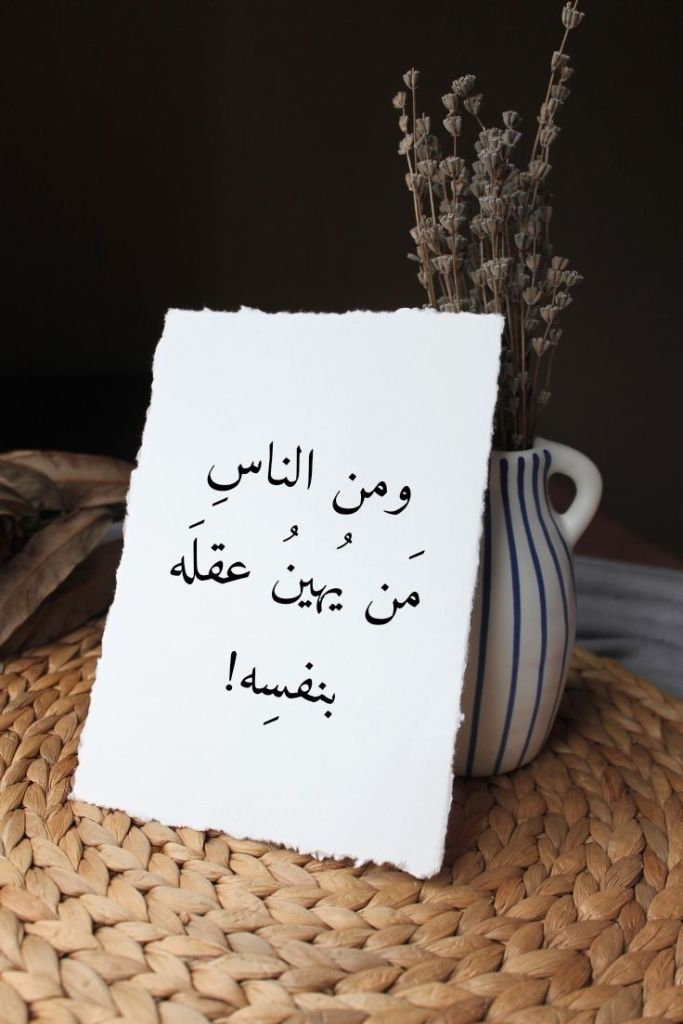 ومن الناسِ
مَن يُهينُ عقلَه
بنفسِه!